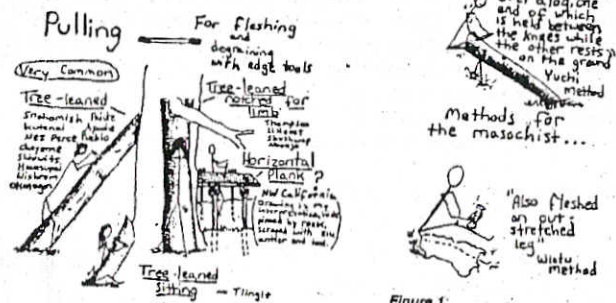 Pulling
For fleshing
and
degraining
with edge tools
Very Common
Tree-leaned
Snohomish Paiute
Kutenai
Nez Perce Pueblo
Cheyenne
Havasupai
Wishram
Okanagon
Tree-leaned
notched for
limb
Thompson
Lillooet
Shushwap
Navajo
Horizontal
Plank?
NW California
Drawing is my
interpretation, hide
pinned by
scraped with elk
antler and
Tree-leaned
sitting — Tlingit
over a log, one
end of which
is held between
the knees while
the other rests
on the ground"
Yuchi
Method
Methods for
the masochist...
"Also fleshed
on out-
stretched
leg"
Wintu
method
Figure 1: